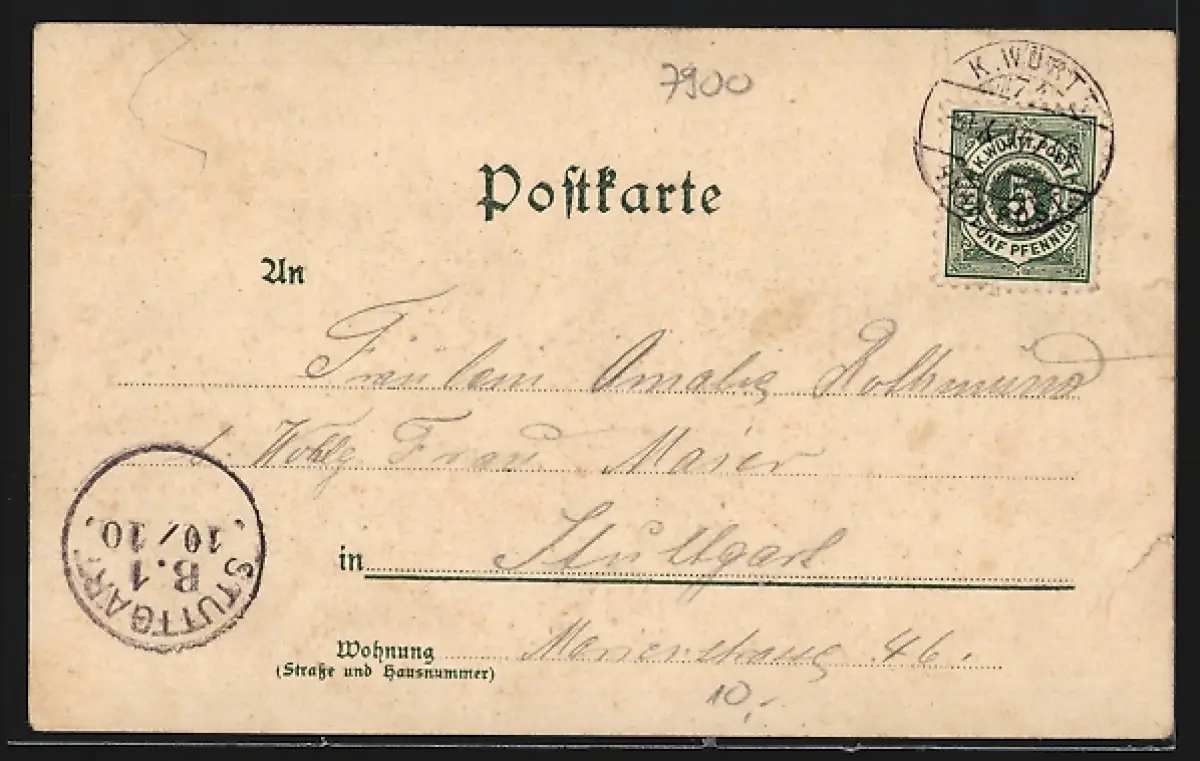 7900
K. WÜRTT.
Postkarte
K. WÜRTT. POST
5
FÜNF PFENNIG
An
Fräulein Amalie Rothmund
b. Wohlg. Frau Maier
in Stuttgart
STUTTGART
B. 1
10/10.
Wohnung Marienstrasse 46.
(Straße und Hausnummer)
10.-